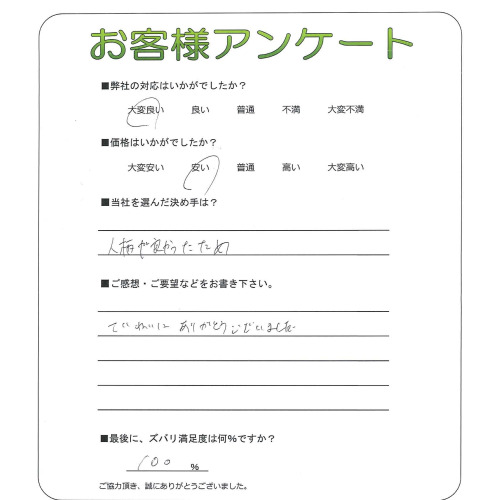 お客様アンケート
■弊社の対応はいかがでしたか？
大変良い 良い 普通 不満 大変不満
■価格はいかがでしたか？
大変安い 安い 普通 高い 大変高い
■当社を選んだ決め手は？
人柄が良かったため
■ご感想・ご要望などをお書き下さい。
ていねいに ありがとうございました
■最後に、ズバリ満足度は何％ですか？
100 %
ご協力頂き、誠にありがとうございました。